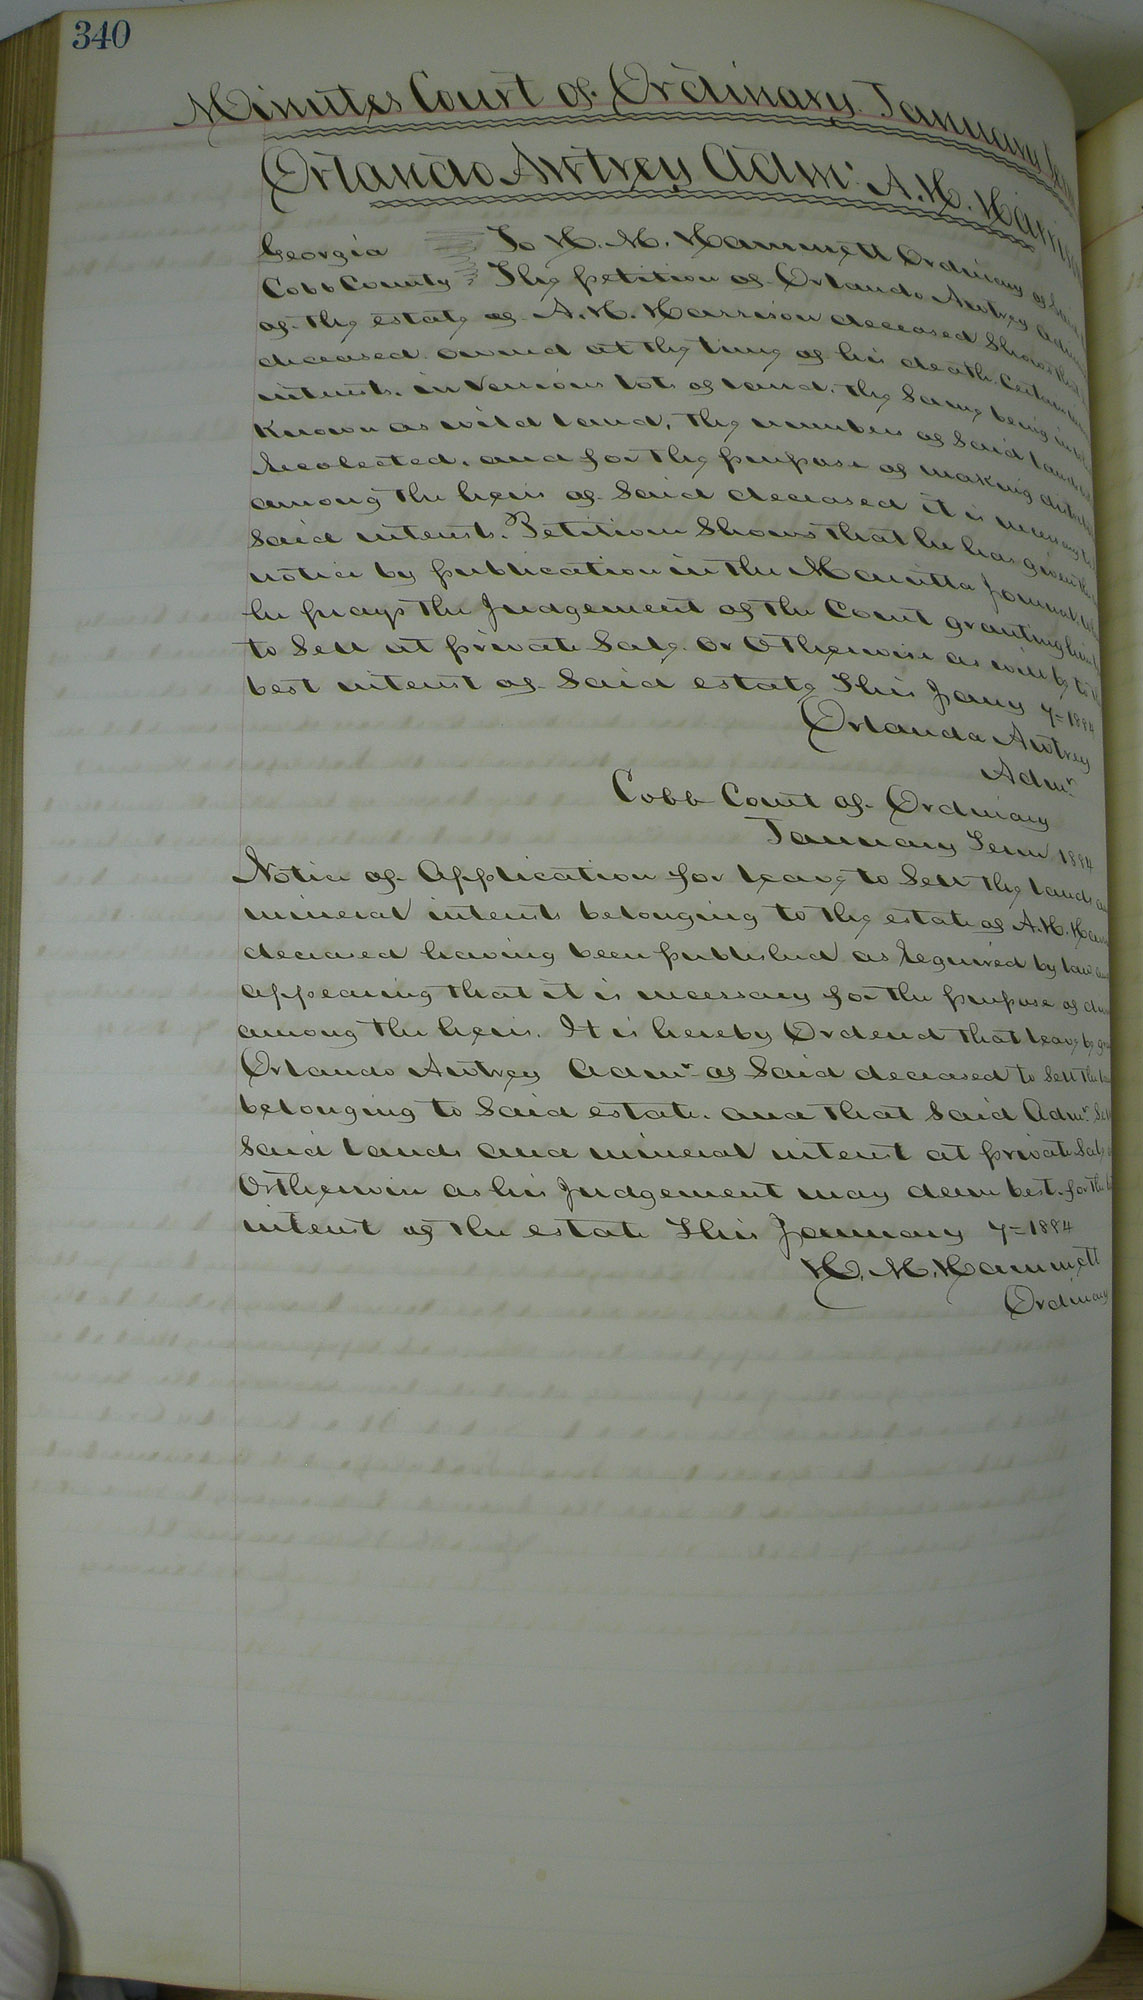 340
Minutes Court of Ordinary January
Orlando Awtrey Admr. A. H. Harrison
Georgia To H. M. Hammett Ordinary of Said
Cobb County The petition of Orlando Awtrey
of the estate of A. H. Harrison deceased Shows that
deceased owned at the time of his death Certain
interests in Various lots of land, the Same being
Known as wild land, the numbers of Said lands
recolected, and for the purpose of making
among the heirs of Said deceased it is necessary to
Said interests. Petitioner Shows that he has given
notice by publication in the Marietta Journal
he prays the Judgement of the Court granting him
to Sell at private Sale or Otherwise as will be to
best interest of Said estate This Jany 7= 1884
Orlando Awtrey
Admr.
Cobb Court of Ordinary
January Term 1884
Notice of Application for leave to Sell the lands
mineral interests belonging to the estate of A. H.
deceased having been published as required by law
appearing that it is necessary for the purpose of
among the heirs. It is hereby Ordered that leave be
Orlando Awtrey Admr of Said deceased to Sell the
belonging to Said estate. and that Said Admr. Sell
Said lands and mineral interest at private Sale
Otherwise as his Judgement may deem best for the
interest of the estate This January 7= 1884
H. M. Hammett
Ordinary